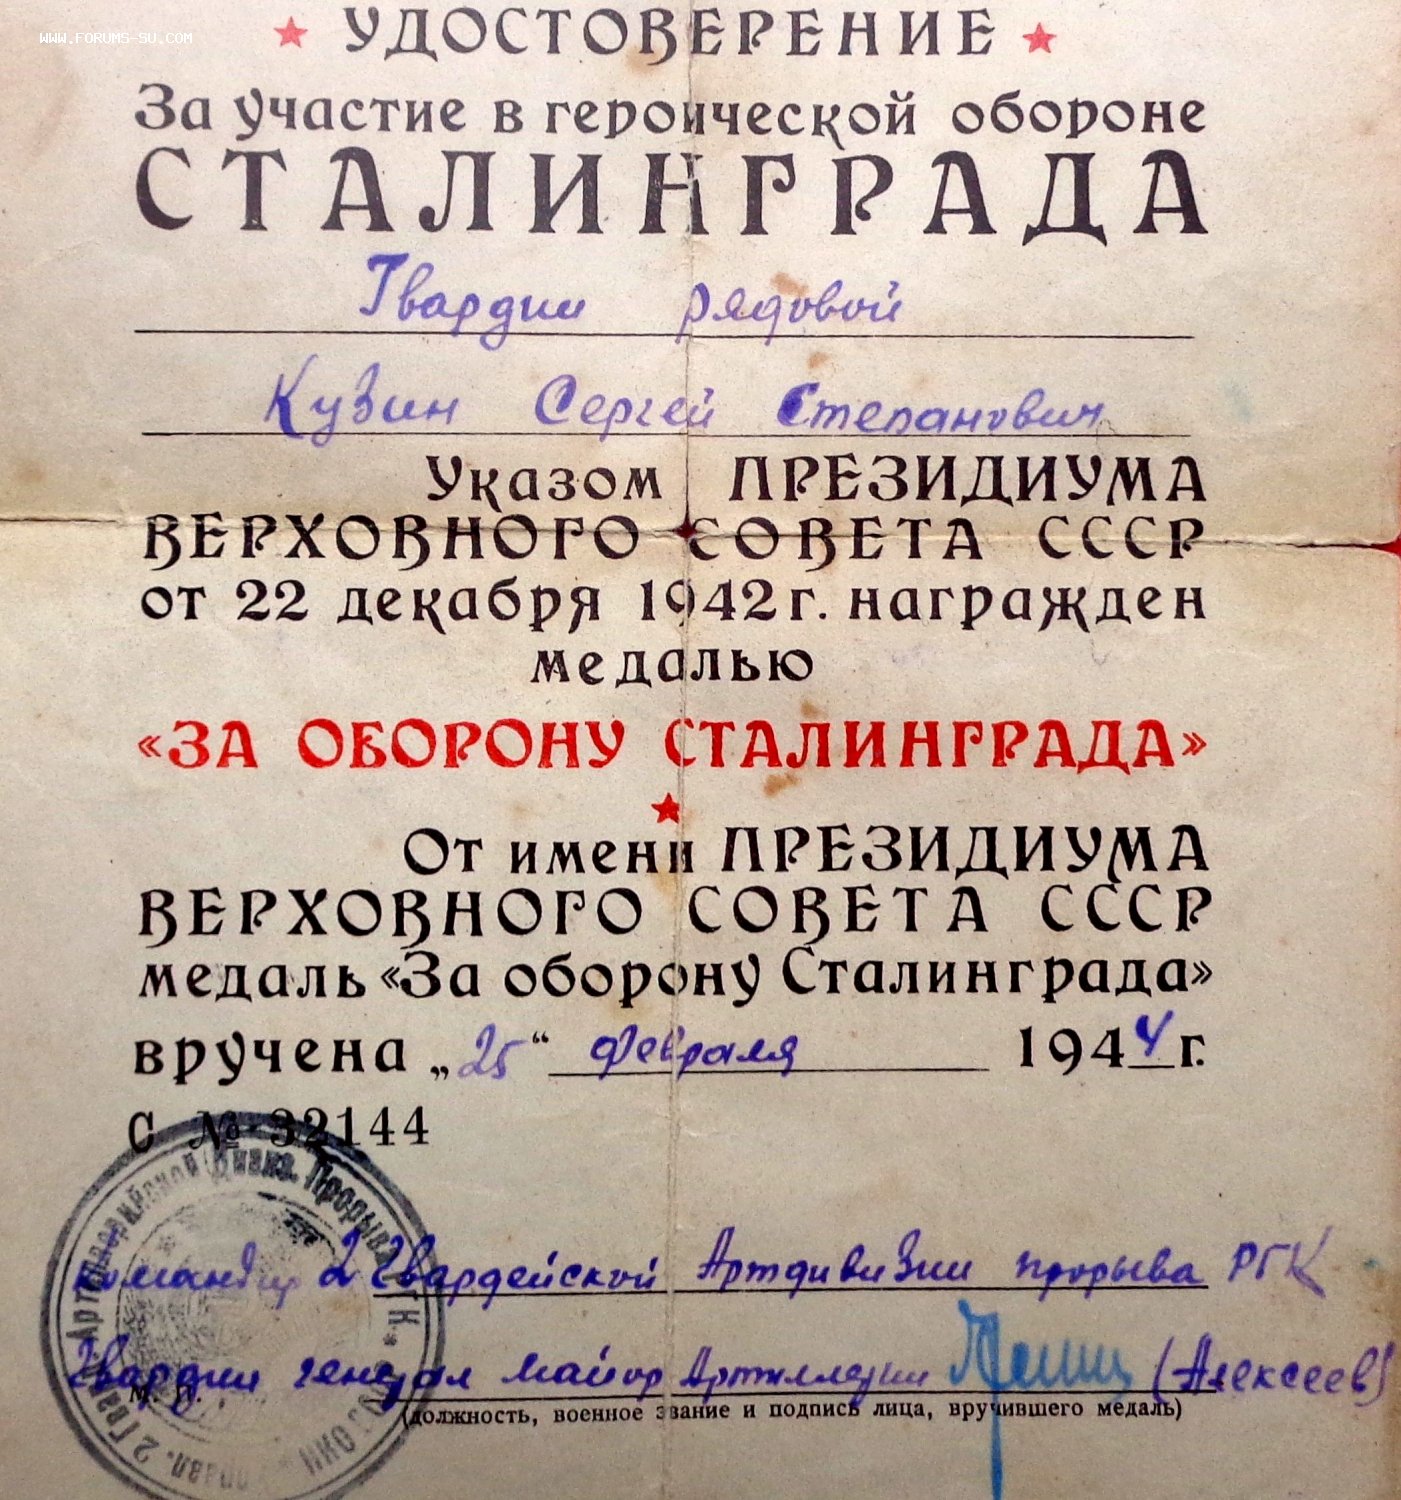 WWW.FORUMS-SU.COM
УДОСТОВЕРЕНИЕ
За участие в героической обороне
СТАЛИНГРАДА
Гвардии рядовой
Кузин Сергей Степанович
Указом ПРЕЗИДИУМА
ВЕРХОВНОГО СОВЕТА СССР
от 22 декабря 1942 г. награжден
медалью
«ЗА ОБОРОНУ СТАЛИНГРАДА»
От имени ПРЕЗИДИУМА
ВЕРХОВНОГО СОВЕТА СССР
медаль «За оборону Сталинграда»
вручена „25“ февраля 1944 г.
С № 32144
Артиллерийской Дивиз. Прорыва РГК
командир 2 Гвардейской Артдивизии прорыва РГК
Гвардии генерал майор Артиллерии (Алексеев)
М. П.
(должность, военное звание и подпись лица, вручившего медаль)